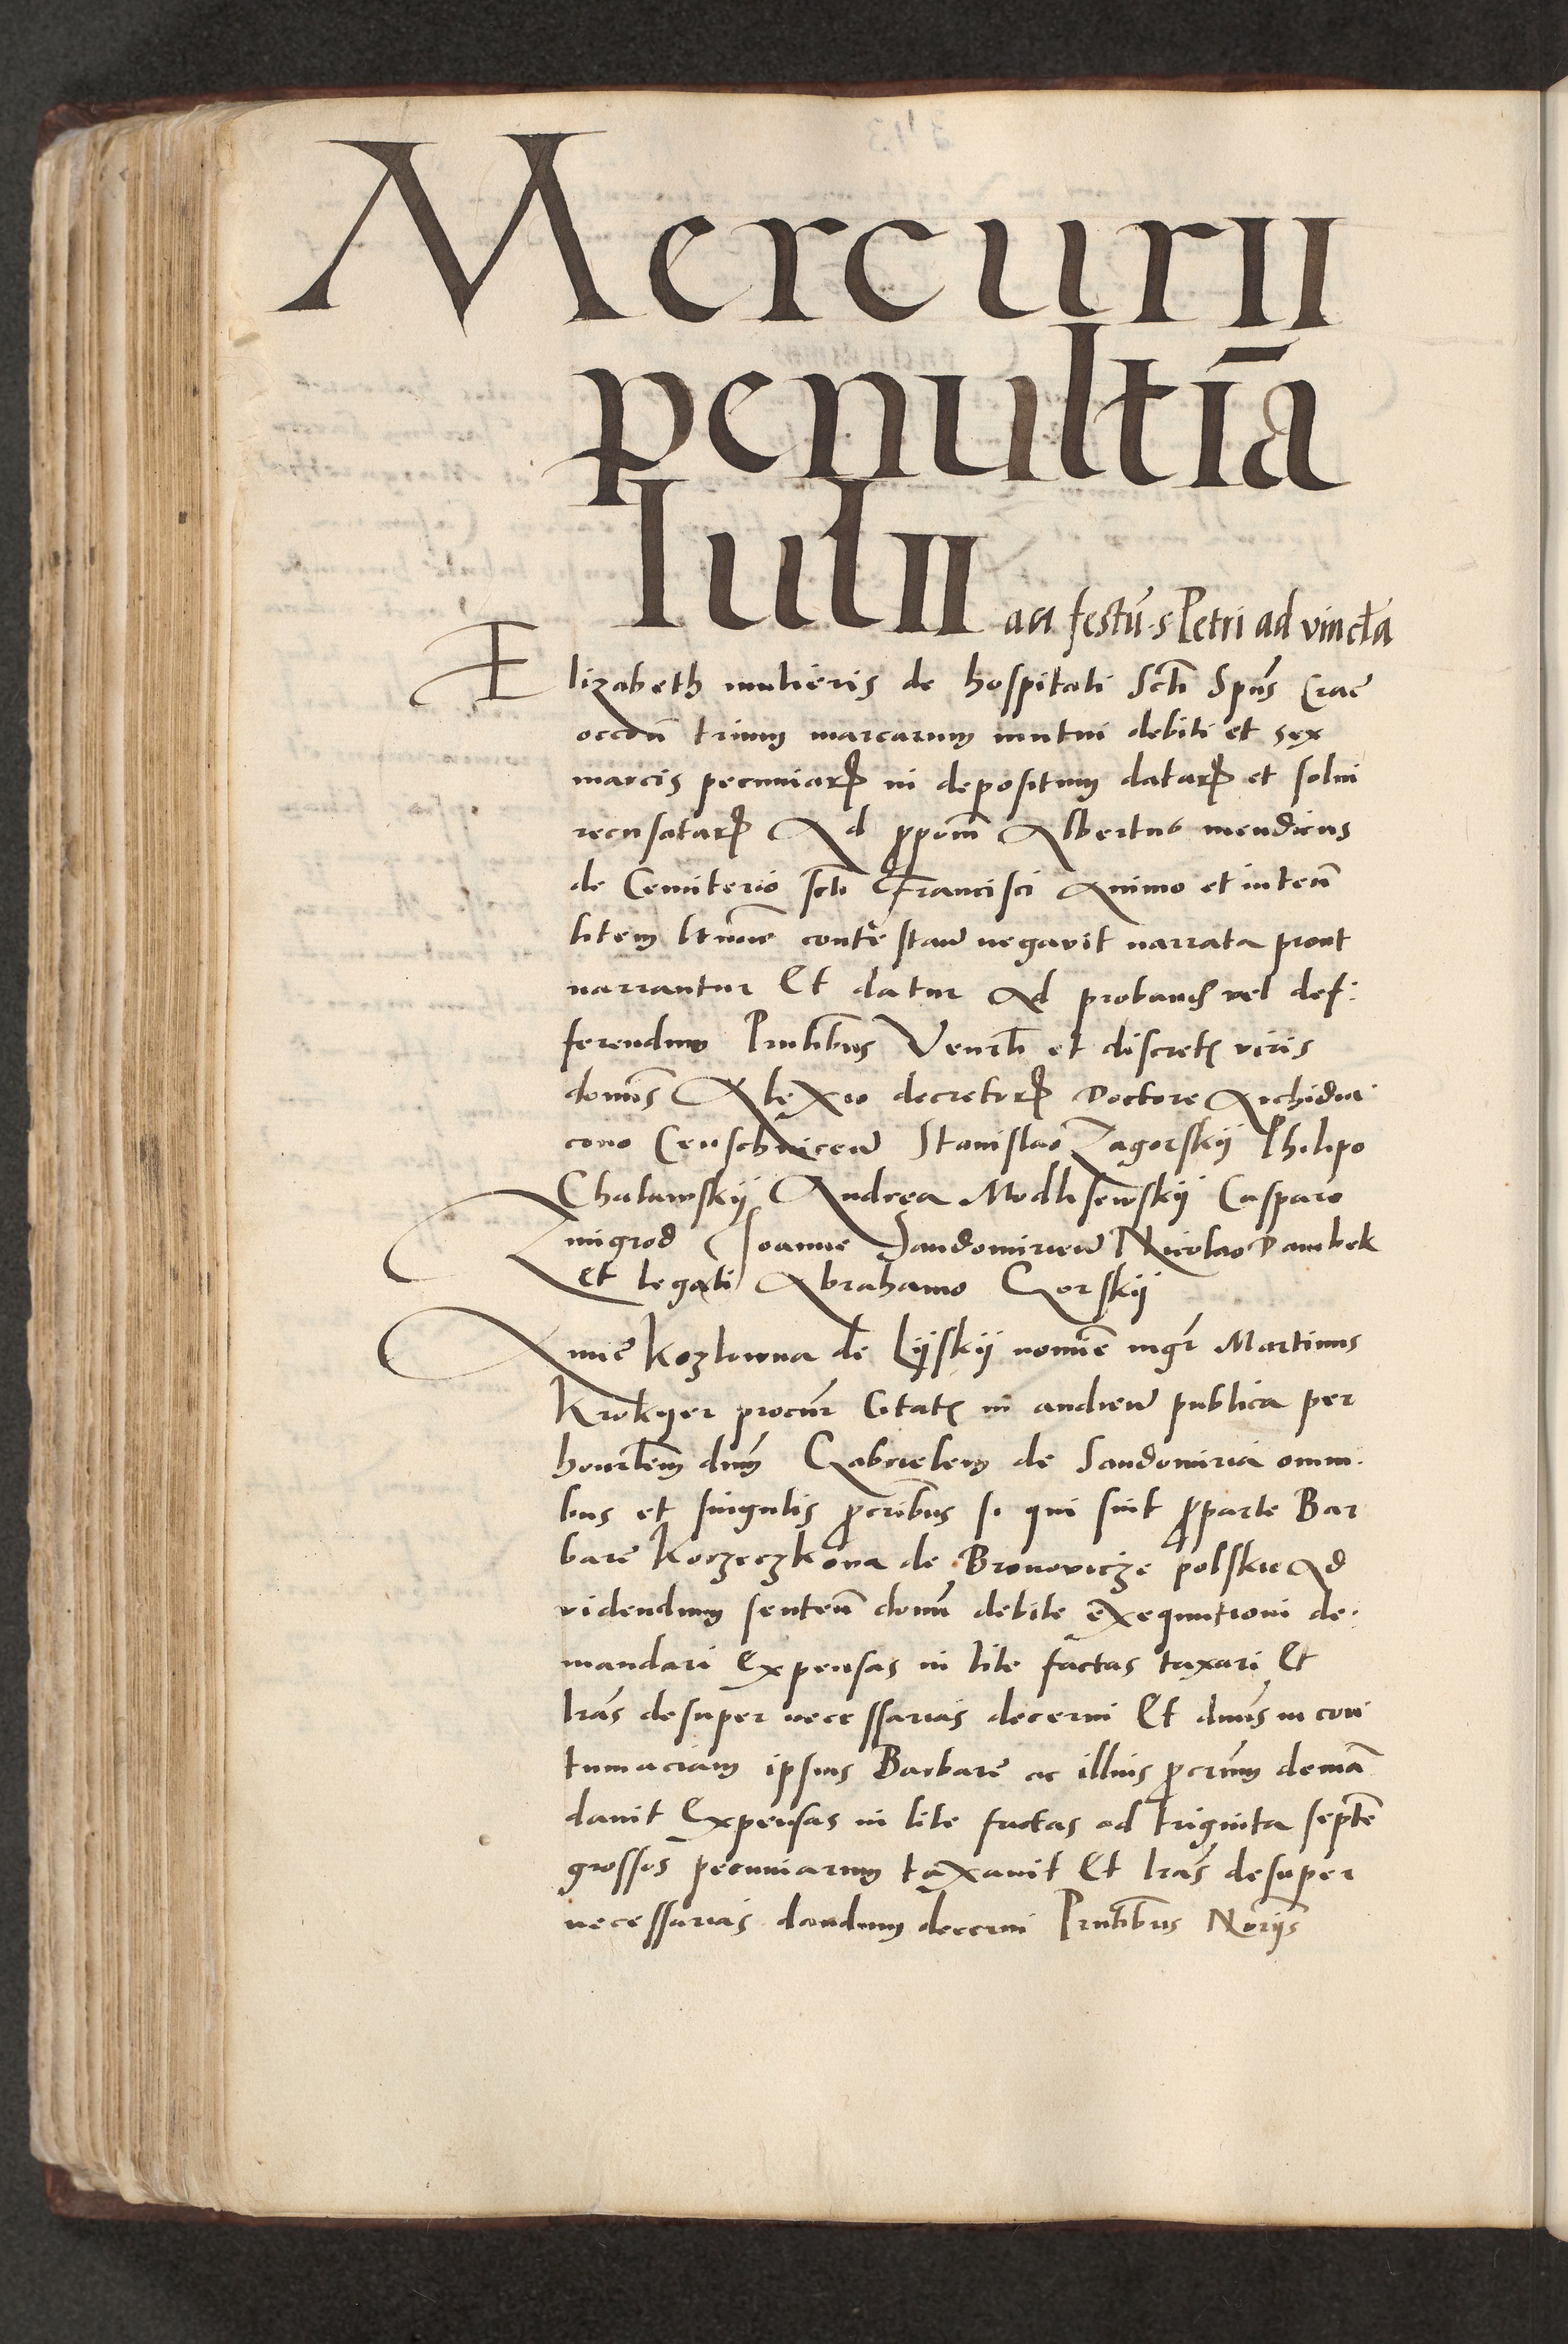 Mercurii
penultīa
Iulii an festū s Petri ad vincła
Elizabeth mulieris de hospitali Scti Spūs Crac̄
occōn trium marcarum mutui debiti et sex
marcis pecuniarꝝ in depositum datarꝝ et solui
recusatarꝝ Ad ꝓpōm Albertus mendicus
de Cemiterio scti Francisci Animo et inten̄
litem ltīme contestan̄ negavit narrata prout
narrantur Et datur Ad proband̄ vel def:
ferendum Pntibus Venrli et discret viris
domīs Alexio decretorꝝ Doctore Archidia
cono Stanislao Zagorskij Philipo
Andrea Modlisewskij Casparo
Zmigrod Joanne Sandomirien̄ Nicolao Dambek
et legati Abrahamo Gorskij
Anne Kozlowna de Lijskij nomīe mgr Martinus
Krokyer procur̄ Citat in audien̄ publica per
honrlem dnm Gabrielem de Sandomiria omni.
bus et singulis ꝓcribus si qui sint ꝓ parte Bar
bare Koczeczkowa de Bronovicze polskie Ad
videndum senten̄ domī debite exequutioni de.
mandari Expensas in lite factas taxari Et
lrās desuper necessarias decerni Et dnūs in con
tumaciam ipsius Barbare ac illius ꝓcrum demā
davit Expensas in lite factas ad triginta septē
grossos pecuniarum taxavit Et lrās desuper
necessarias dandum decerni Pntibus Norijs